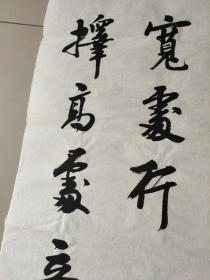 寬處行
擇高處立